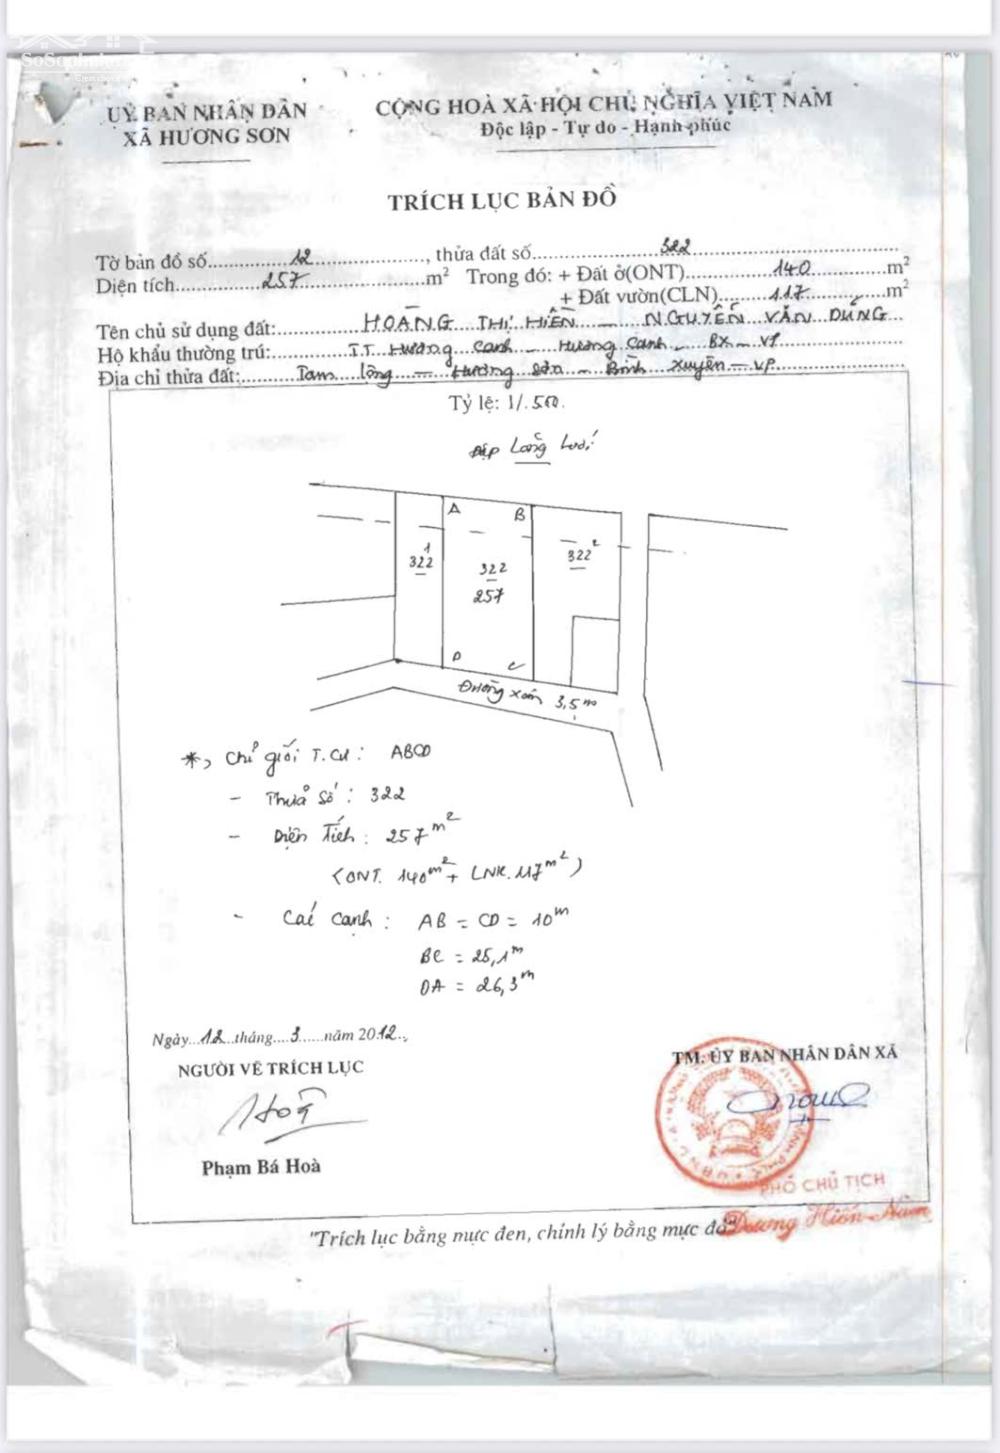 UỶ BAN NHÂN DÂN
XÃ HƯƠNG SƠN
CỘNG HOÀ XÃ HỘI CHỦ NGHĨA VIỆT NAM
Độc lập - Tự do - Hạnh phúc
TRÍCH LỤC BẢN ĐỒ
Tờ bản đồ số.....12....., thửa đất số.....322.....
Diện tích.....257.....m² Trong đó: + Đất ở(ONT).....140.....m²
+ Đất vườn(CLN).....117.....m²
Tên chủ sử dụng đất:.....HOÀNG THỊ HIỀN - NGUYỄN VĂN DŨNG
Hộ khẩu thường trú:.....T.T. Hương Canh - Hương Canh - BX - VP
Địa chỉ thửa đất:.....Tam Lộng - Hương Sơn - Bình Xuyên - VP
Tỷ lệ: 1/.500.
Đập Lưới
A B
322¹
322
257
322²
D C
Đường xóm 3,5m
*, Chỉ giới T.Cư : ABCD
- Thửa Số : 322
- Diện Tích : 257m²
(ONT. 140m² + LNK. 117m²)
- Các cạnh : AB = CD = 10m
BC = 25,1m
DA = 26,3m
Ngày...12...tháng...3...năm 2012..
NGƯỜI VẼ TRÍCH LỤC
Hoà
Phạm Bá Hoà
TM. ỦY BAN NHÂN DÂN XÃ
PHÓ CHỦ TỊCH
Dương Hiến Năm
"Trích lục bằng mực đen, chỉnh lý bằng mực đỏ"